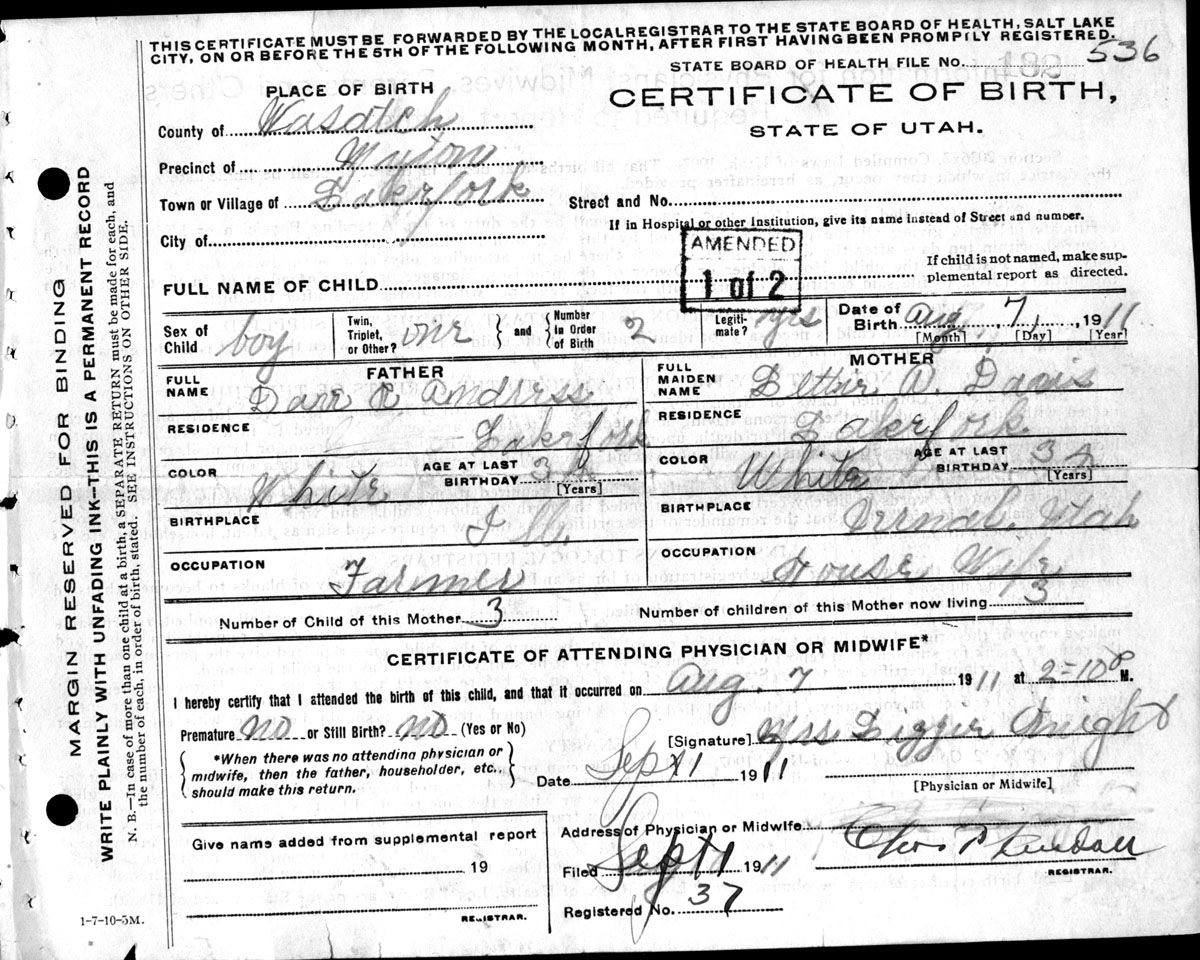 THIS CERTIFICATE MUST BE FORWARDED BY THE LOCALREGISTRAR TO THE STATE BOARD OF HEALTH, SALT LAKE
CITY, ON OR BEFORE THE 5TH OF THE FOLLOWING MONTH, AFTER FIRST HAVING BEEN PROMPILY REGISTERED.
STATE BOARD OF HEALTH FILE NO. 536
PLACE OF BIRTH
CERTIFICATE OF BIRTH,
STATE OF UTAH.
County of Wasatch
Precinct of Myton
Town or Village of Lakefork
Street and No.
If in Hospital or other Institution, give its name instead of Street and number.
City of
AMENDED
1 of 2
If child is not named, make sup-
plemental report as directed.
FULL NAME OF CHILD
Sex of Child boy
Twin, Triplet, or Other? one { and } Number in Order of Birth
Legiti-mate? yes
Date of Birth Aug 7, 1911
[Month] [Day] [Year]
FATHER
FULL NAME Dan R. Andress
RESIDENCE Lakefork
COLOR White
AGE AT LAST BIRTHDAY
[Years]
BIRTHPLACE Ill.
OCCUPATION Farmer
MOTHER
FULL MAIDEN NAME Davis
RESIDENCE Lakefork
COLOR White
AGE AT LAST BIRTHDAY 32
[Years]
BIRTHPLACE Vernal, Utah
OCCUPATION House Wife
Number of Child of this Mother 3
Number of children of this Mother now living 3
CERTIFICATE OF ATTENDING PHYSICIAN OR MIDWIFE*
I hereby certify that I attended the birth of this child, and that it occurred on Aug. 7 1911 at 2=10 P M.
Premature NO or Still Birth? NO (Yes or No)
*When there was no attending physician or
midwife, then the father, householder, etc.,
should make this return.
[Signature] Knight
Date Sept 1 1911
[Physician or Midwife]
Give name added from supplemental report
19
REGISTRAR.
Address of Physician or Midwife
Filed Sept 1 1911
REGISTRAR.
Registered No. 37
1-7-10-5M.
MARGIN RESERVED FOR BINDING
WRITE PLAINLY WITH UNFADING INK-THIS IS A PERMANENT RECORD
N. B.—In case of more than one child at a birth, a SEPARATE RETURN must be made for each, and
the number of each, in order of birth, stated. SEE INSTRUCTIONS ON OTHER SIDE.